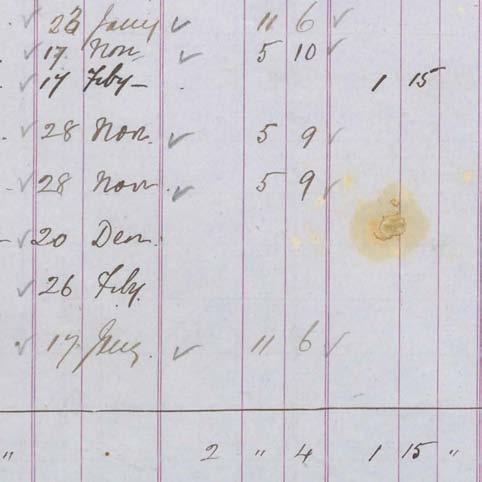 23 Jany 11 6
17 Nov 5 10
17 Feby 1 15
28 Nov. 5 9
28 Nov 5 9
20 Decr.
26 Feby.
17 Jany. 11 6
" 2 " 4 1 15 "